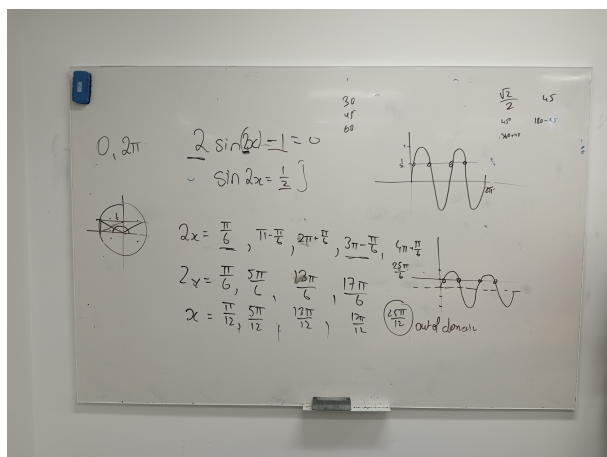 30
45
60
√2/2 45
45° 180-45
360+45
0, 2π
2 sin(2x) - 1 = 0
sin 2x = 1/2 }
1/2
2π
2x = π/6, π - π/6, 2π + π/6, 3π - π/6, 4π + π/6
25π/6
2x = π/6, 5π/6, 13π/6, 17π/6
x = π/12, 5π/12, 13π/12, 17π/12 25π/12 out of domain